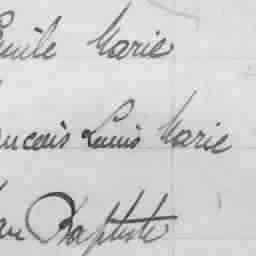 Emile Marie
ançois Louis Marie
an Baptiste